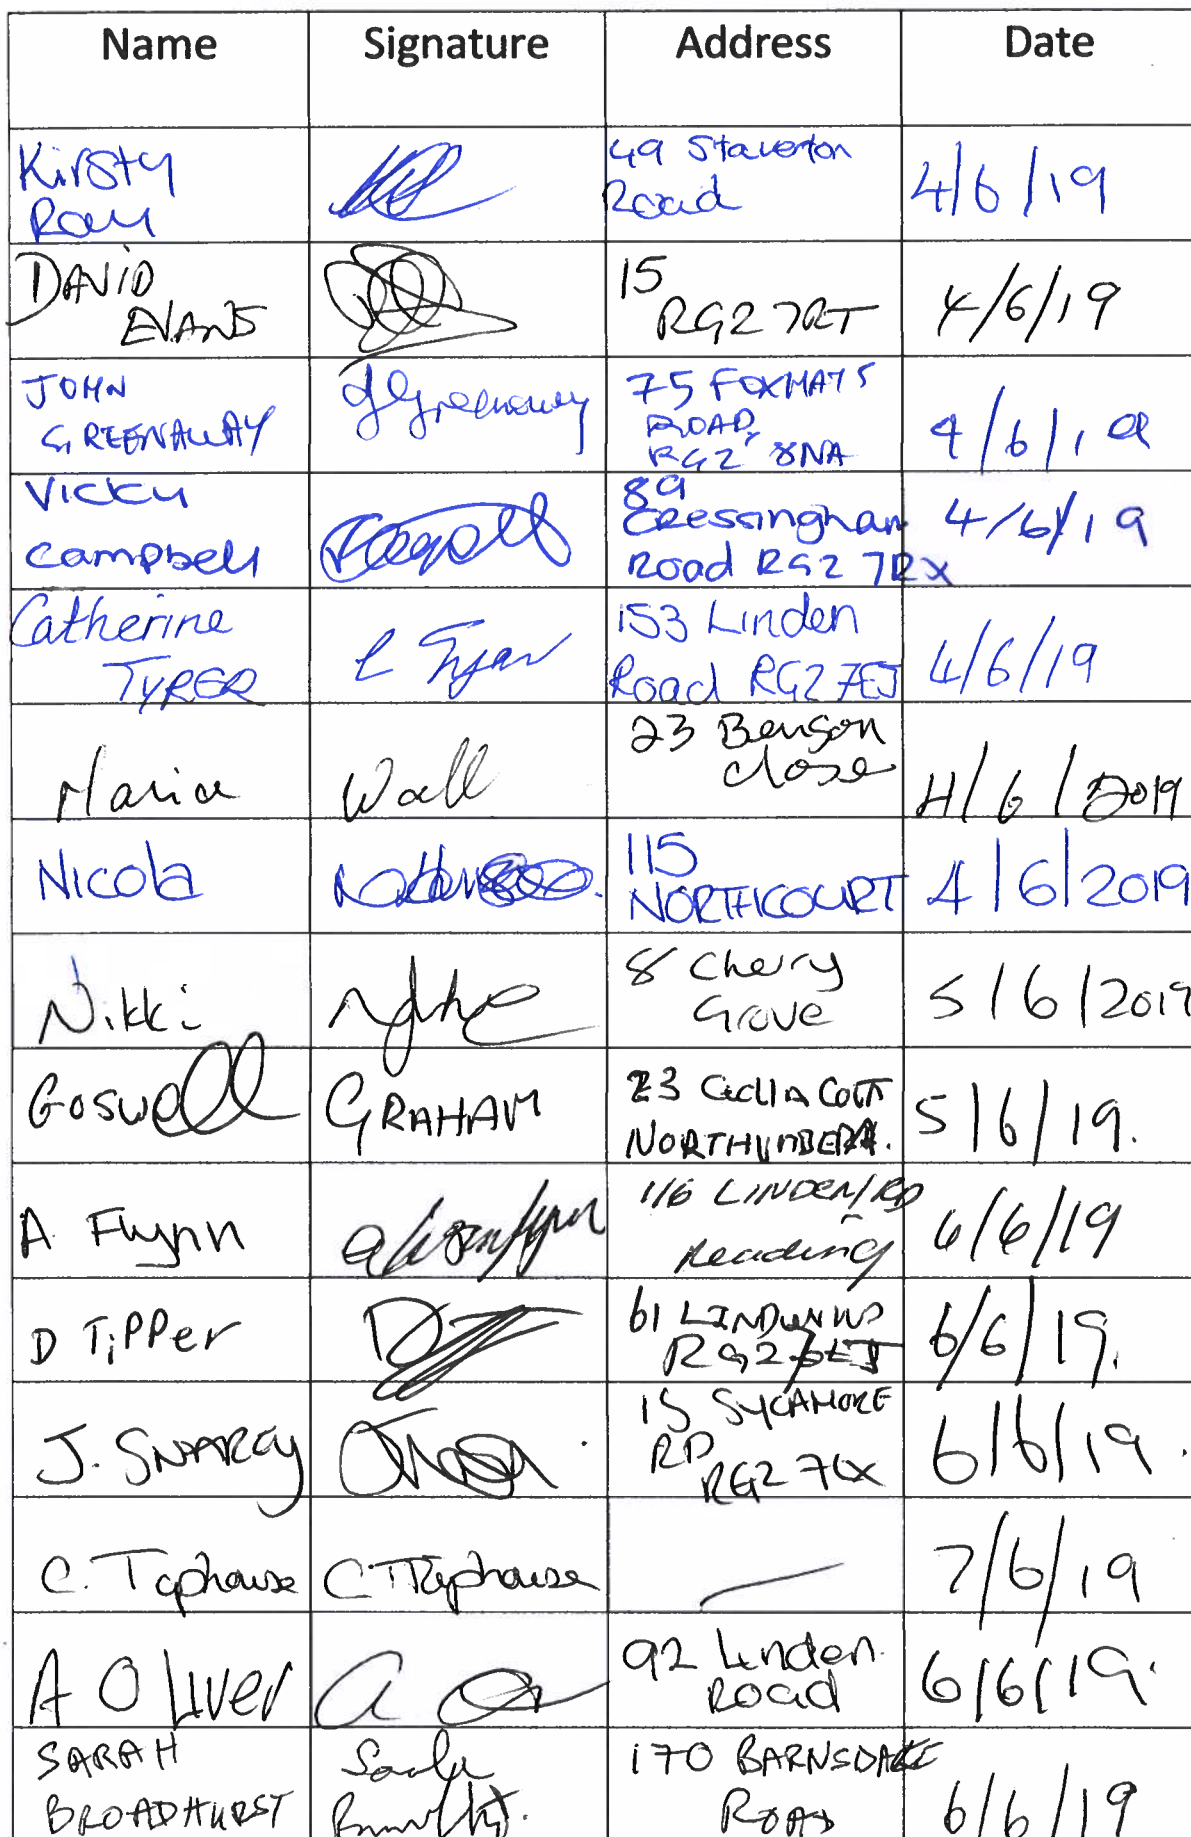 Name Signature Address Date
Kirsty Ray 49 Staverton Road 4/6/19
DAVID EVANS 15 RG2 7RT 4/6/19
JOHN GREENAWAY JGreenaway 75 FOXHAYS ROAD, RG2 8NA 4/6/19
Vicky Campbell 89 Cressingham Road RG2 7RX 4/6/19
Catherine TYRER C Tyrer 153 Linden Road RG2 7EJ 4/6/19
Maria Wall 23 Benson close 4/6/2019
Nicola 115 NORTHCOURT 4/6/2019
Nikki 8 Cherry Grove 5/6/2019
Goswell GRAHAM 23 5/6/19.
A Flynn 116 LINDEN RD Reading 6/6/19
D Tipper 61 RG2 6/6/19.
J. SNAREY 15 SYCAMORE RD RG2 7LX 6/6/19.
C. Taphouse C Taphouse — 7/6/19
A Oliver 92 Linden Road 6/6/19.
SARAH BROADHURST Sarah 170 BARNSDALE ROAD 6/6/19